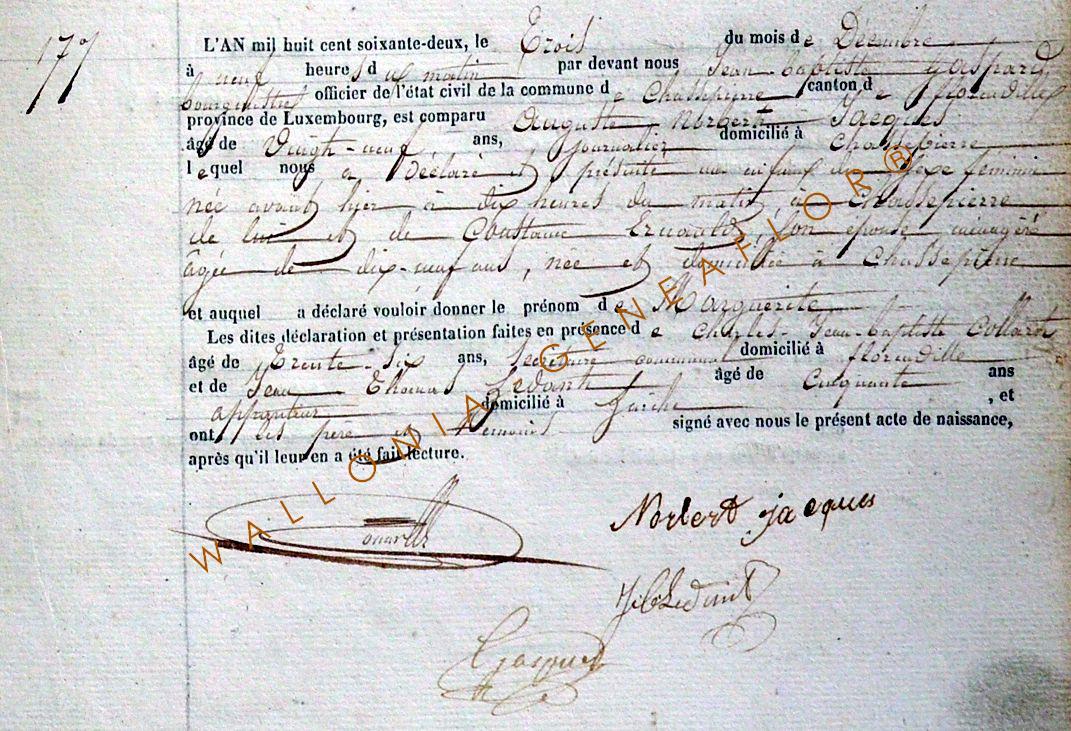 177
L'AN mil huit cent soixante-deux, le Trois du mois de Décembre
à neuf heures du matin par devant nous Jean-Baptiste Gaspard
bourgmestre officier de l'état civil de la commune de Chassepierre canton de Florenville
province de Luxembourg, est comparu Auguste Norbert Jacques
âgé de Vingt-neuf ans, journalier domicilié à Chassepierre
lequel nous a Déclaré et présenté un enfant du sexe féminin
née avant hier à dix heures du matin, à Chassepierre
de lui et de Constance, son épouse ménagère
âgée de dix-neuf ans, née et domiciliée à Chassepierre
et auquel a déclaré vouloir donner le prénom de Marguerite
Les dites déclaration et présentation faites en présence de Charles-Jean-Baptiste Collard
âgé de Trente-six ans, Secrétaire communal domicilié à florenville
et de Jean Thomas âgé de Cinquante ans
appariteur domicilié à , et
ont les père et témoins signé avec nous le présent acte de naissance,
après qu'il leur en a été fait lecture.
Norbert jacques
WALLONIA GENEAFLOR ®